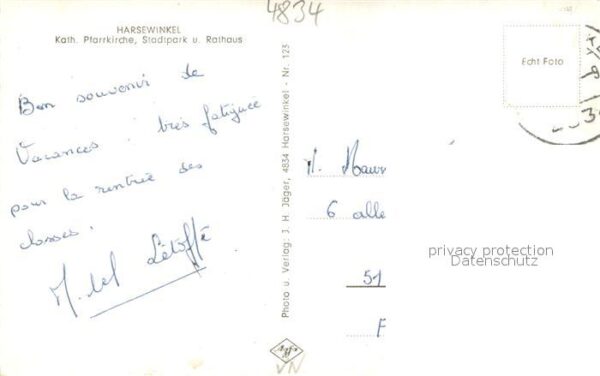 4834
HARSEWINKEL
Kath. Pfarrkirche, Stadtpark u. Rathaus
Bon souvenir de
Vacances. très fatiguée
pour la rentrée des
classes.
Photo u. Verlag: J. H. Jäger, 4834 Harsewinkel - Nr. 123
Agfa
Echt Foto
6 allé
51
F
privacy protection
Datenschutz